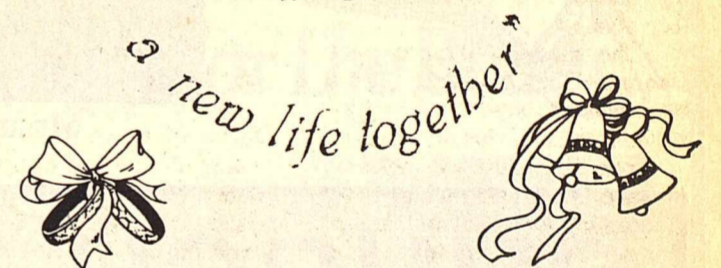 a new life together"